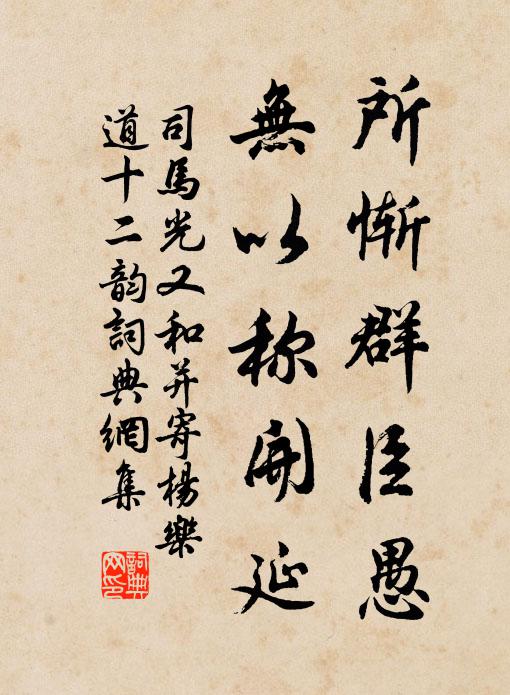 所慚群臣愚
無以称開延
司馬光又和并寄楊樂
道十二韵詞典網集
詞典网印